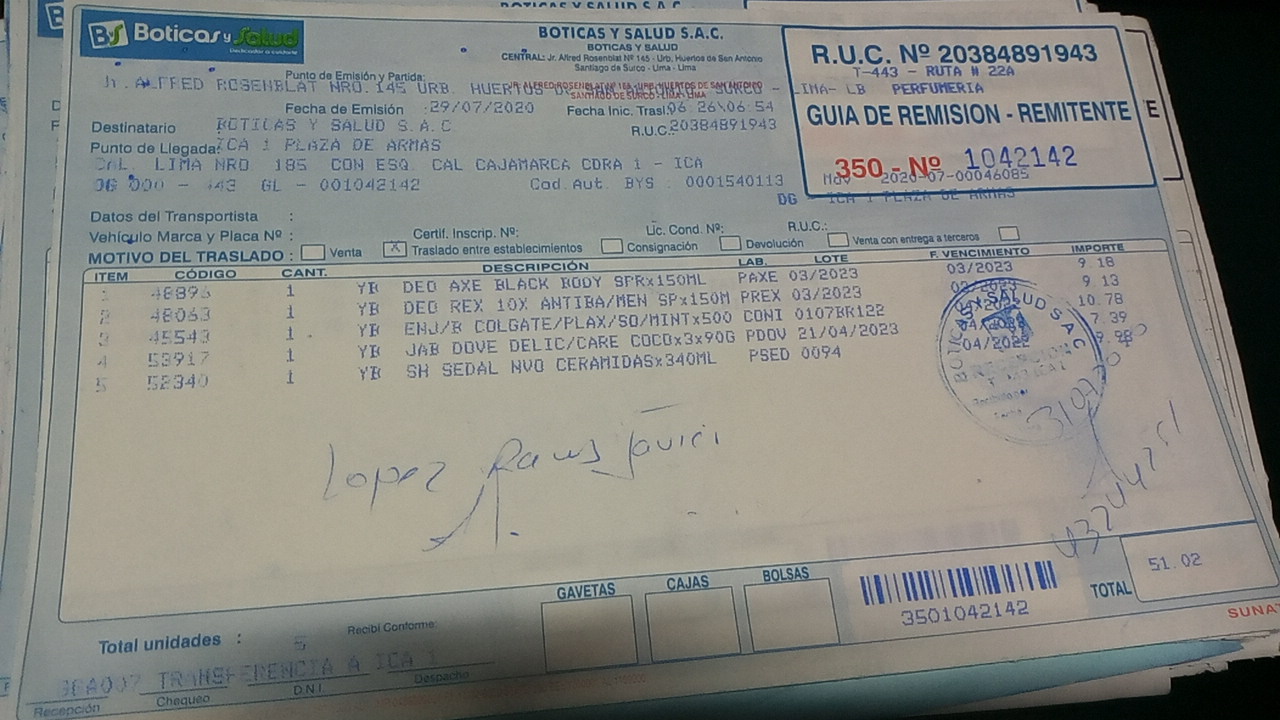 BOTICAS Y SALUD S.A.C.
BS Boticas y Salud
BOTICAS Y SALUD S.A.C.
BOTICAS Y SALUD
CENTRAL: Jr. Alfred Rosenblat Nº 145 - Urb. Huertos de San Antonio
Santiago de Surco - Lima - Lima
R.U.C. Nº 20384891943
T-443 - RUTA # 22A
PERFUMERIA
GUIA DE REMISION - REMITENTE
350 - Nº 1042142
Mov 2020-07-00046085
DG - ICA 1 PLAZA DE ARMAS
Punto de Emisión y Partida:
Jr. ALFRED ROSENBLAT NRO. 145 URB. HUERTOS DE SAN ANTONIO SURCO - LIMA- LB
JR. ALFRED ROSENBLAT Nº 145 URB. HUERTOS DE SAN ANTONIO
SANTIAGO DE SURCO - LIMA - LIMA
Fecha de Emisión :29/07/2020 Fecha Inic. Trasl.: 06:26:06:54
Destinatario BOTICAS Y SALUD S.A.C R.U.C.: 20384891943
Punto de Llegada: ICA 1 PLAZA DE ARMAS
CAL. LIMA NRO 185 CON ESQ. CAL CAJAMARCA CDRA 1 - ICA
DG 000 - 443 GL - 001042142 Cod.Aut. BYS : 0001540113
Datos del Transportista :
Vehículo Marca y Placa Nº : Certif. Inscrip. Nº: Lic. Cond. Nº: R.U.C.:
MOTIVO DEL TRASLADO : Venta X Traslado entre establecimientos Consignación Devolución Venta con entrega a terceros
ITEM CÓDIGO CANT. DESCRIPCIÓN LAB. LOTE F. VENCIMIENTO IMPORTE
1 48896 1 YB DEO AXE BLACK BODY SPRx150ML PAXE 03/2023 03/2023 9.18
2 48063 1 YB DEO REX 10X ANTIBA/MEN SPx150M PREX 03/2023 9.13
3 45543 1 YB ENJ/B COLGATE/PLAX/SO/MINTx500 CONI 0107BR122 10.78
4 53917 1 YB JAB DOVE DELIC/CARE COCOx3x90G PDOV 21/04/2023 7.39
5 52340 1 YB SH SEDAL NVO CERAMIDASx340ML PSED 0094 04/2022
BOTICAS Y SALUD S.A.C.
Lopez Ramos Javier
GAVETAS CAJAS BOLSAS
3501042142
TOTAL 51.02
SUNAT
Total unidades : 5 Recibí Conforme:
TRANSFERENCIA A ICA 1
Recepción Chequeo D.N.I. Despacho